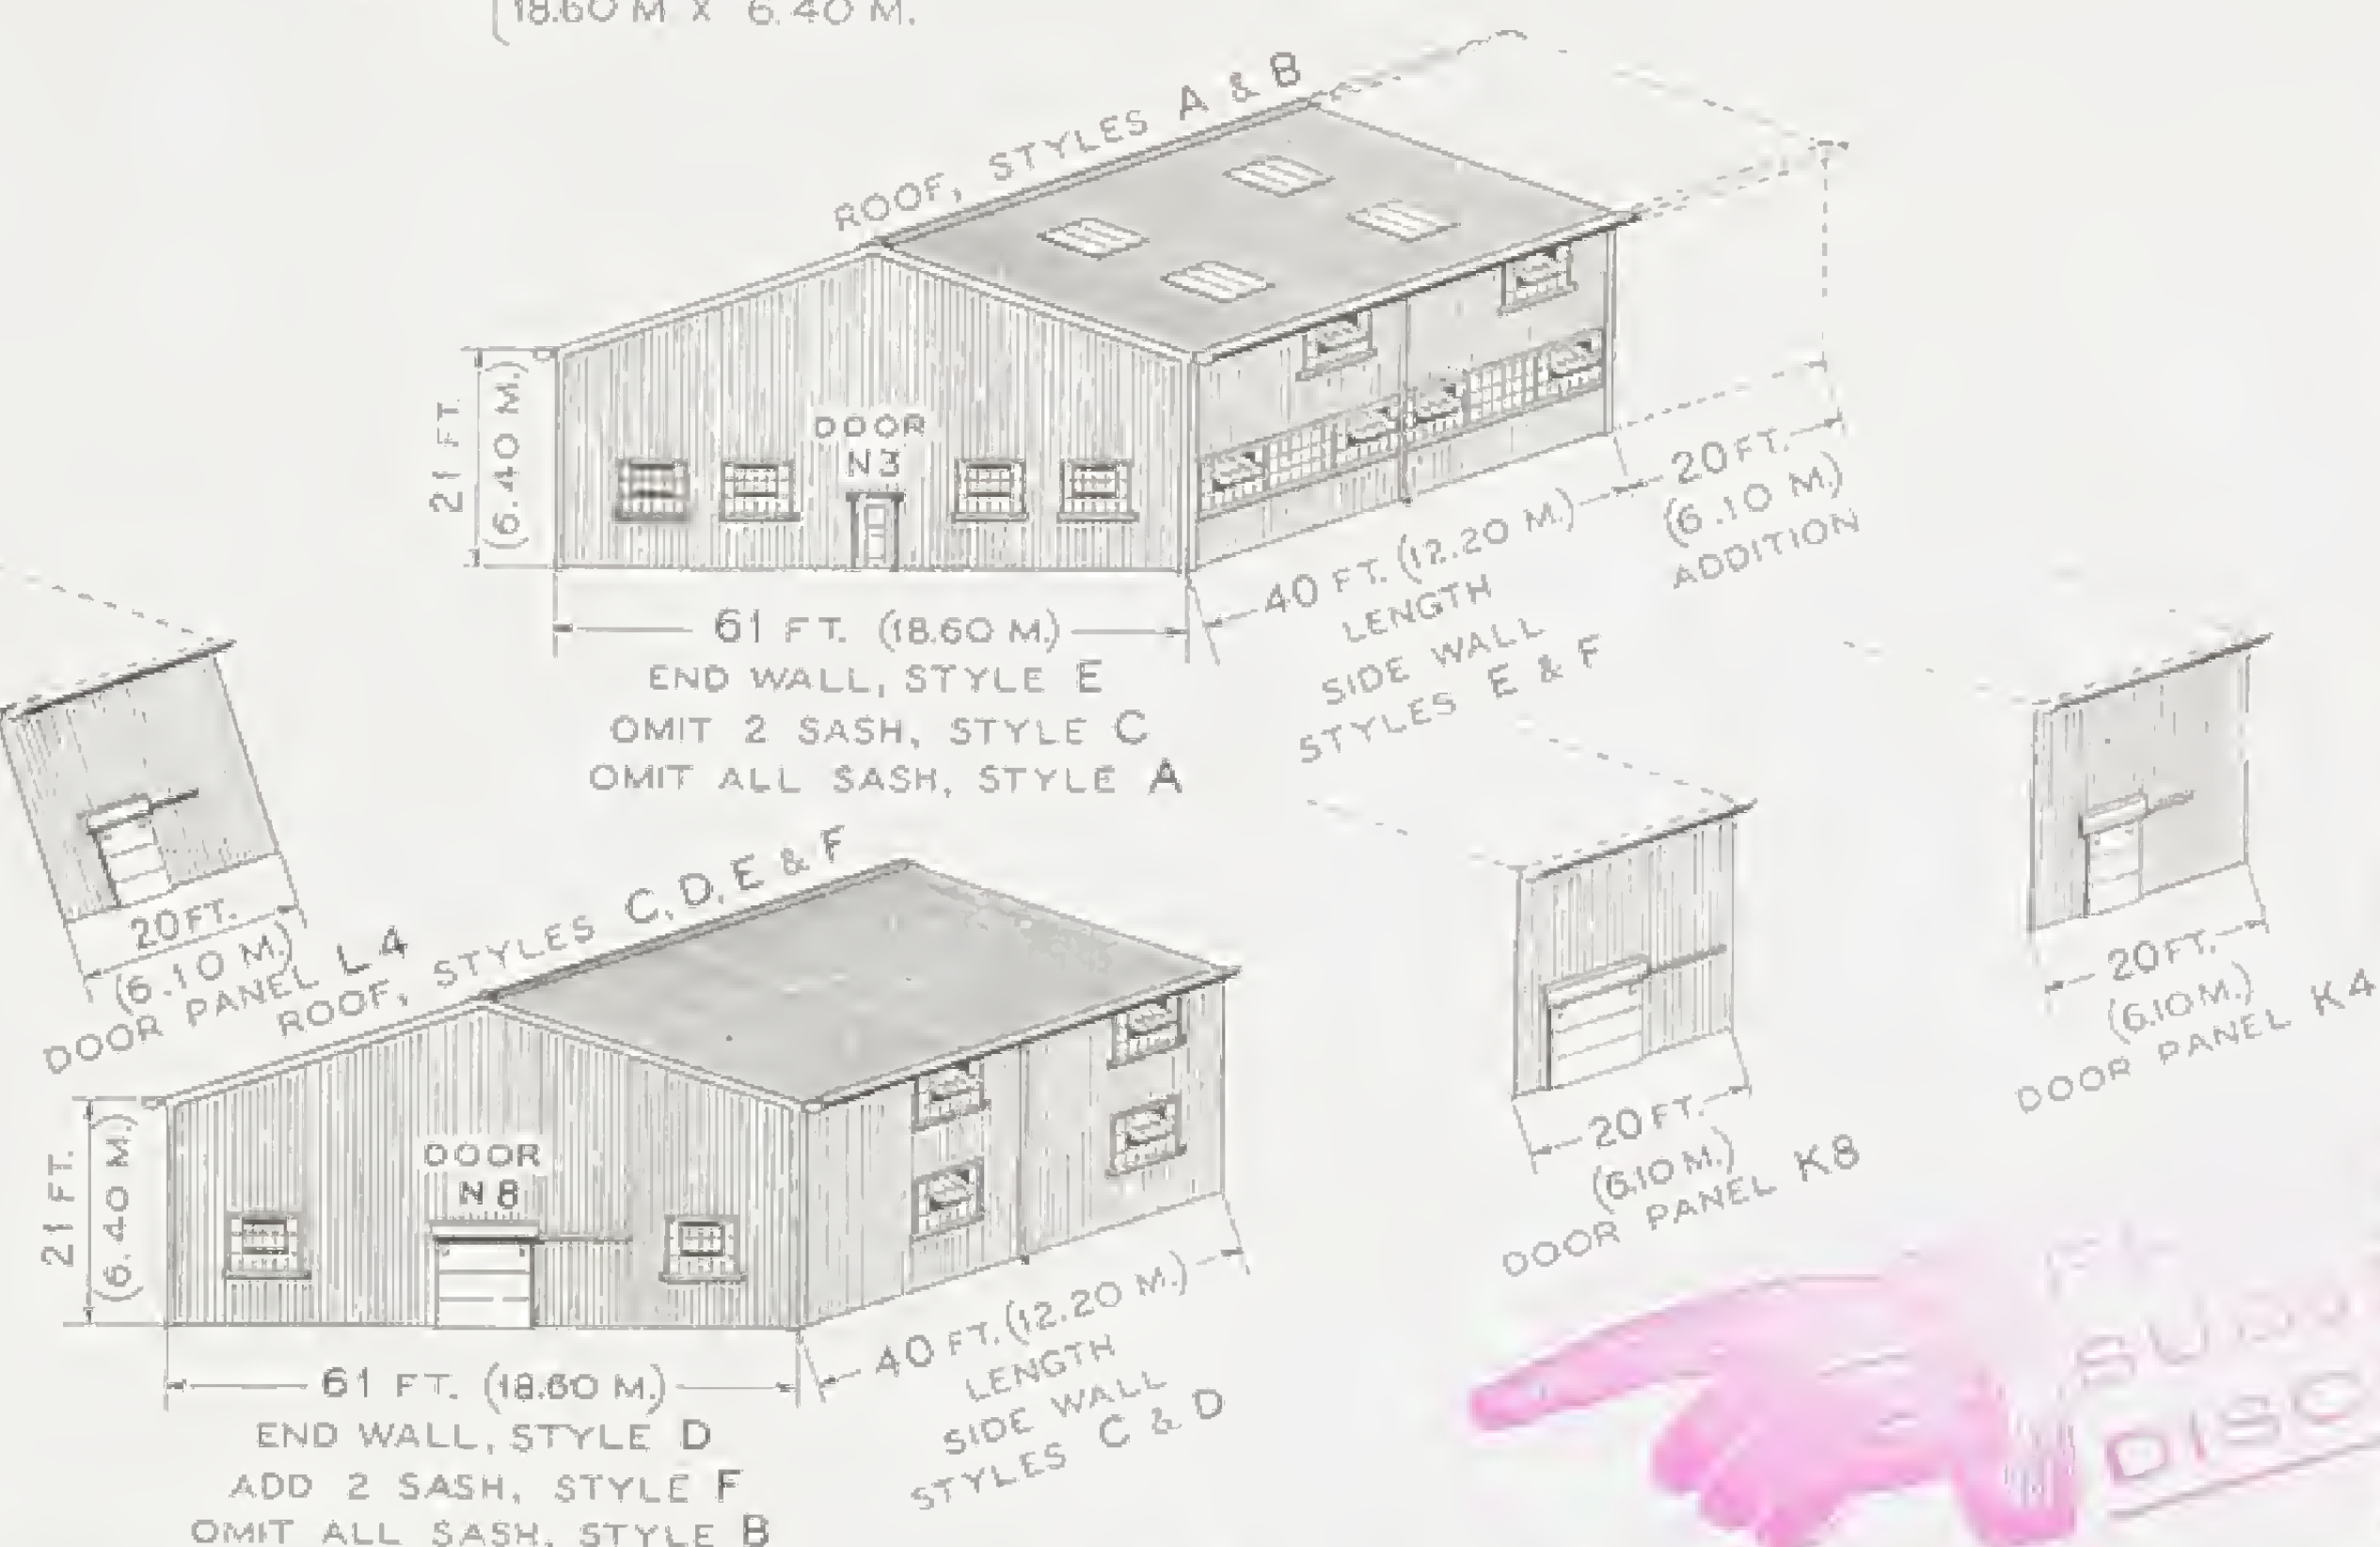 18.60 M. X 6.40 M.
ROOF, STYLES A & B
21 FT.
(6.40 M.)
DOOR
N3
61 FT. (18.60 M.)
END WALL, STYLE E
OMIT 2 SASH, STYLE C
OMIT ALL SASH, STYLE A
40 FT. (12.20 M.)
LENGTH
SIDE WALL
STYLES E & F
20 FT.
(6.10 M.)
ADDITION
20 FT.
(6.10 M.)
DOOR PANEL L4
ROOF, STYLES C, D, E & F
21 FT.
(6.40 M.)
DOOR
N8
61 FT. (18.60 M.)
END WALL, STYLE D
ADD 2 SASH, STYLE F
OMIT ALL SASH, STYLE B
40 FT. (12.20 M.)
LENGTH
SIDE WALL
STYLES C & D
20 FT.
(6.10 M.)
DOOR PANEL K8
20 FT.
(6.10 M.)
DOOR PANEL K4